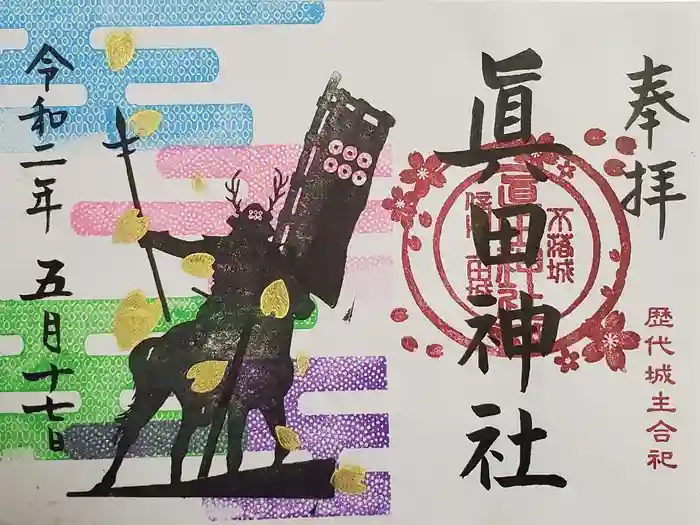 奉拝
歴代城主合祀
眞田神社
不落城
眞田神社
令和二年
五月十七日